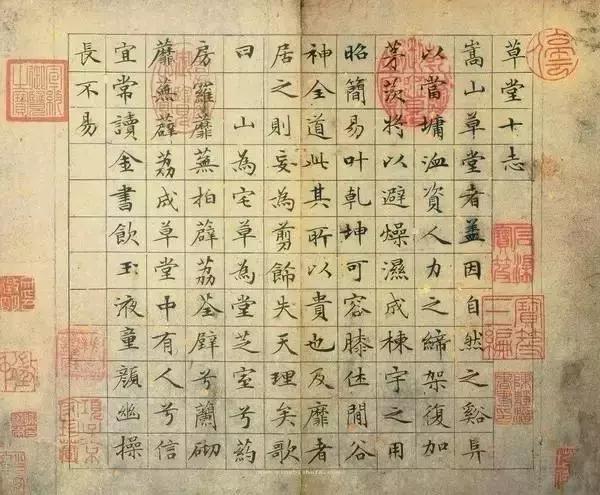 草堂十志
嵩山草堂者盖因自然之谿阜
以當墉洫資人力之締架復加
茅茨将以避燥濕成棟宇之用
昭簡易叶乾坤可容膝休閒谷
神全道此其所以貴也及靡者
居之則妄為剪飾失天理矣歌
曰 山為宅草為堂芝室兮葯
房羅蘼蕪拍薜荔荃壁兮蘭砌
蘼蕪薜荔成草堂中有人兮信
宜常讀金書飲玉液童顏幽操
長不易